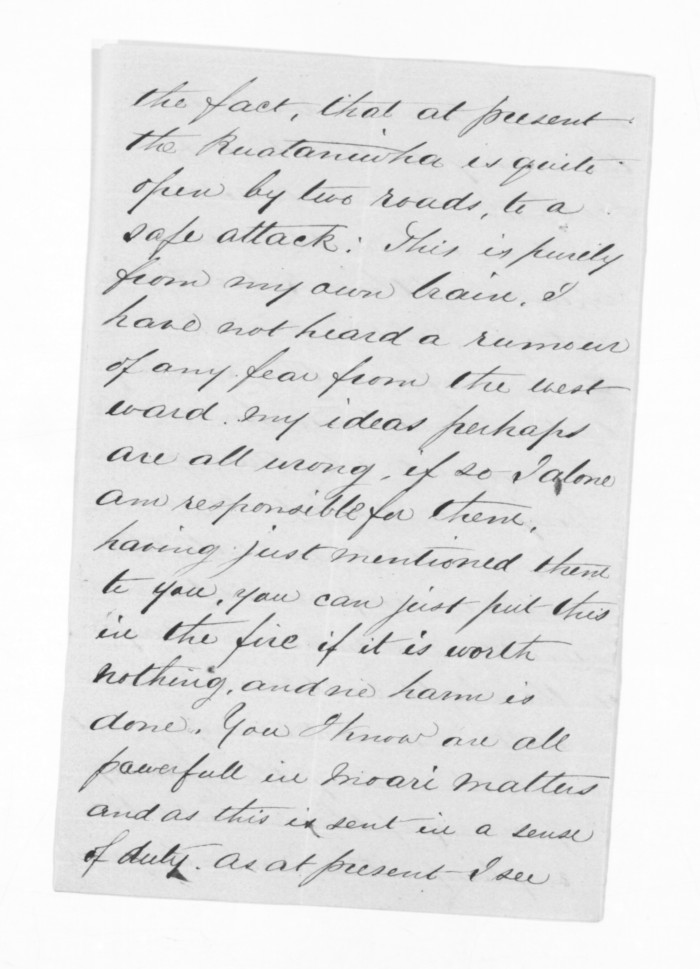 the fact, that at present
the Ruataniwha is quite
open by two roads, to a
safe attack: This is purely
from my own brain, I
have not heard a rumour
of any fear from the west
ward. my ideas perhaps
are all wrong, if so I alone
am responsible for them,
having just mentioned them
to you, you can just put this
in the fire if it is worth
nothing, and no harm is
done. You I know are all
powerfull in Moari matters
and as this is sent in a sense
of duty. as at present I see